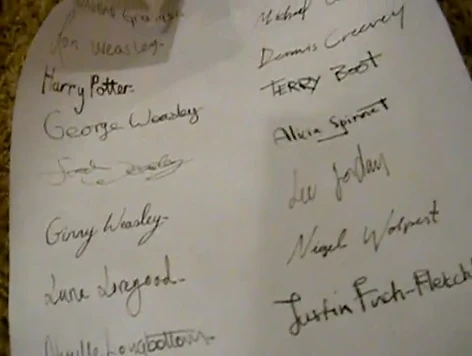 Ron Weasley
Harry Potter
George Weasley
Ginny Weasley
Luna Lovegood
Neville Longbottom
Michael
Dennis Creevey
TERRY BOOT
Alicia Spinnet
Lee Jordan
Nigel Wolpert
Justin Finch-Fletch